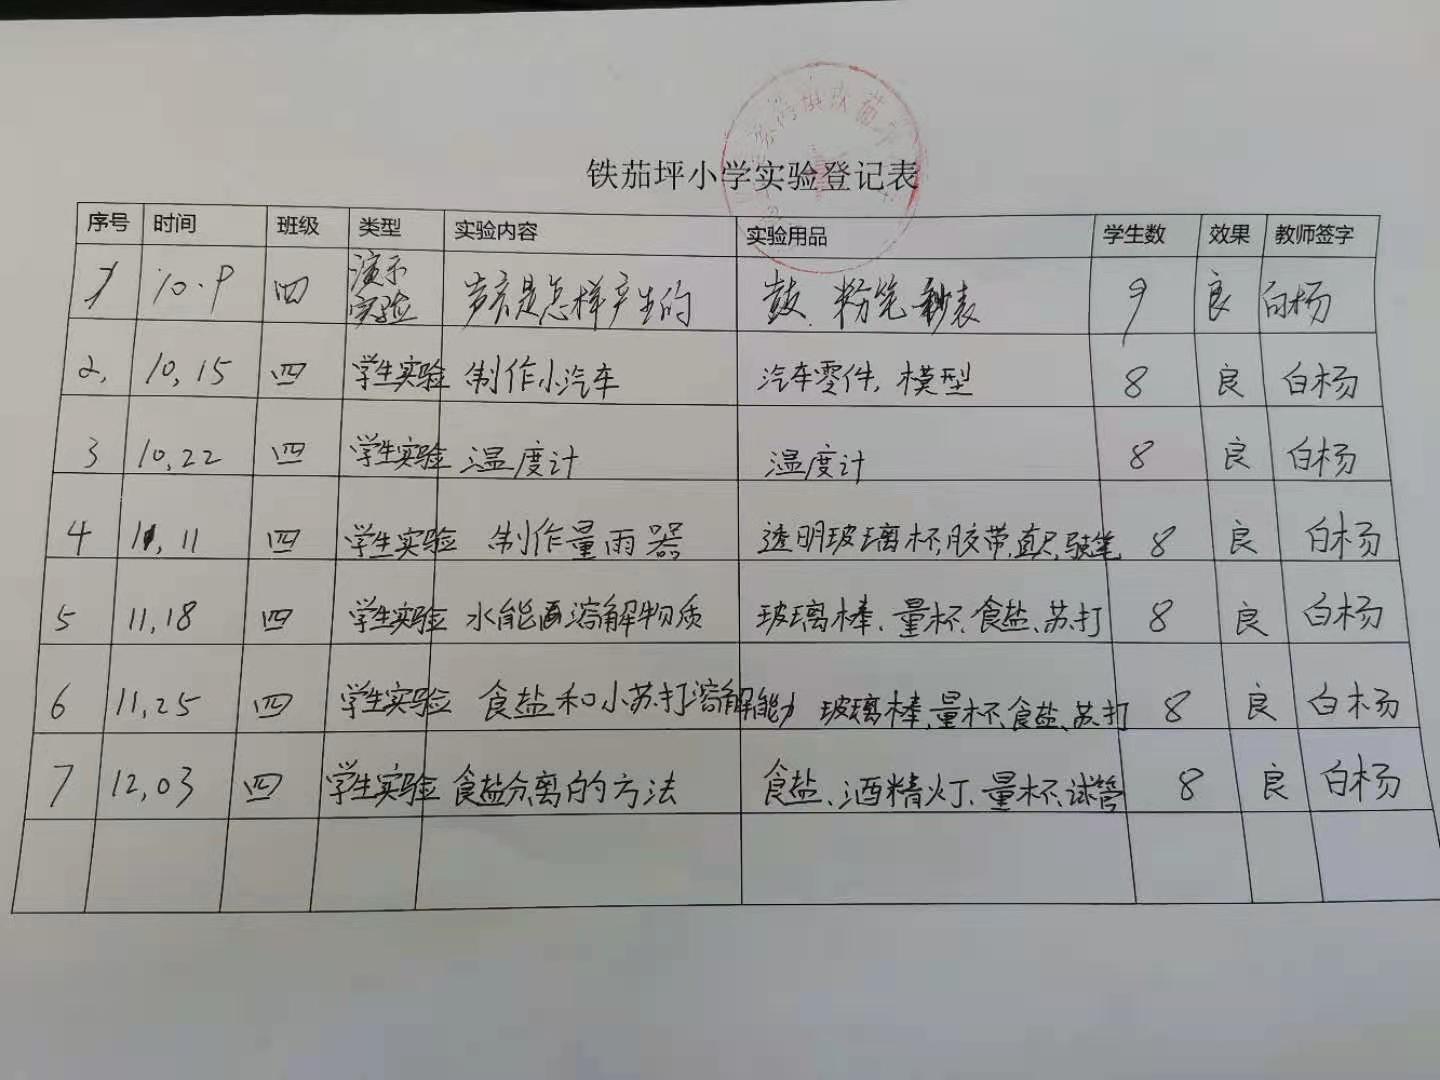 铁茄坪小学实验登记表
序号 时间 班级 类型 实验内容 实验用品 学生数 效果 教师签字
1 10.9 四 演示实验 声音是怎样产生的 鼓、粉笔 秒表 9 良 白杨
2, 10,15 四 学生实验 制作小汽车 汽车零件, 模型 8 良 白杨
3 10,22 四 学生实验 温度计 温度计 8 良 白杨
4 11,11 四 学生实验 制作量雨器 透明玻璃杯、胶带、直尺、 8 良 白杨
5 11,18 四 学生实验 水能溶解物质 玻璃棒、量杯、食盐、苏打 8 良 白杨
6 11,25 四 学生实验 食盐和小苏打溶解能力 玻璃棒,量杯、食盐、苏打 8 良 白杨
7 12,03 四 学生实验 食盐分离的方法 食盐、酒精灯、量杯、试管 8 良 白杨